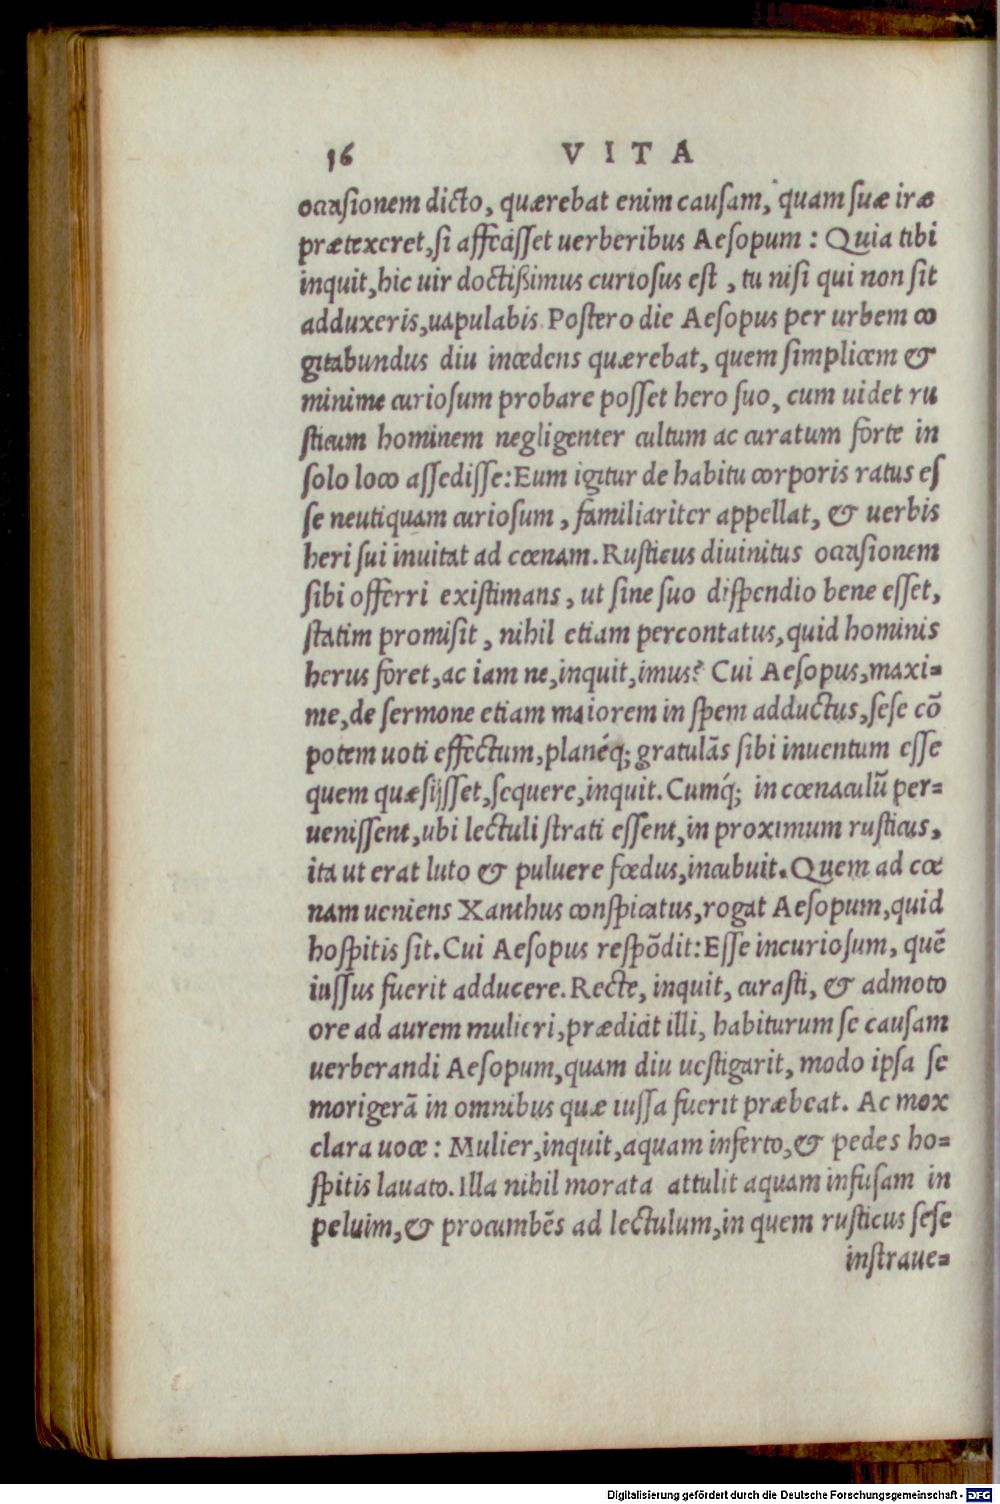 16 VITA
occasionem dicto, quærebat enim causam, quam suæ iræ
prætexeret, si affecisset uerberibus Aesopum: Quia tibi
inquit, hic uir doctißimus curiosus est, tu nisi qui non sit
adduxeris, uapulabis. Postero die Aesopus per urbem co
gitabundus diu incedens quærebat, quem simplicem &
minime curiosum probare posset hero suo, cum uidet ru
sticum hominem negligenter cultum ac curatum forte in
solo loco assedisse: Eum igitur de habitu corporis ratus es
se neutiquam curiosum, familiariter appellat, & uerbis
heri sui inuitat ad cœnam. Rusticus diuinitus occasionem
sibi offerri existimans, ut sine suo dispendio bene esset,
statim promisit, nihil etiam percontatus, quid hominis
herus foret, ac iam ne, inquit, imus? Cui Aesopus, maxi=
me, de sermone etiam maiorem in spem adductus, sese cō
potem uoti effectum, planéq; gratulãs sibi inuentum esse
quem quæsijsset, sequere, inquit. Cumq́; in cœnaculũ per=
uenissent, ubi lectuli strati essent, in proximum rusticus,
ita ut erat luto & puluere fœdus, incubuit. Quem ad cœ
nam ueniens Xanthus conspicatus, rogat Aesopum, quid
hospitis sit. Cui Aesopus respōdit: Esse incuriosum, quē
iussus fuerit adducere. Recte, inquit, curasti, & admoto
ore ad aurem mulieri, prædicit illi, habiturum se causam
uerberandi Aesopum, quam diu uestigarit, modo ipsa se
morigerã in omnibus quæ iussa fuerit præbeat. Ac mox
clara uoce: Mulier, inquit, aquam inferto, & pedes ho=
spitis lauato. Illa nihil morata attulit aquam infusam in
peluim, & procumbēs ad lectulum, in quem rusticus sese
instraue=
Digitalisierung gefördert durch die Deutsche Forschungsgemeinschaft - DFG